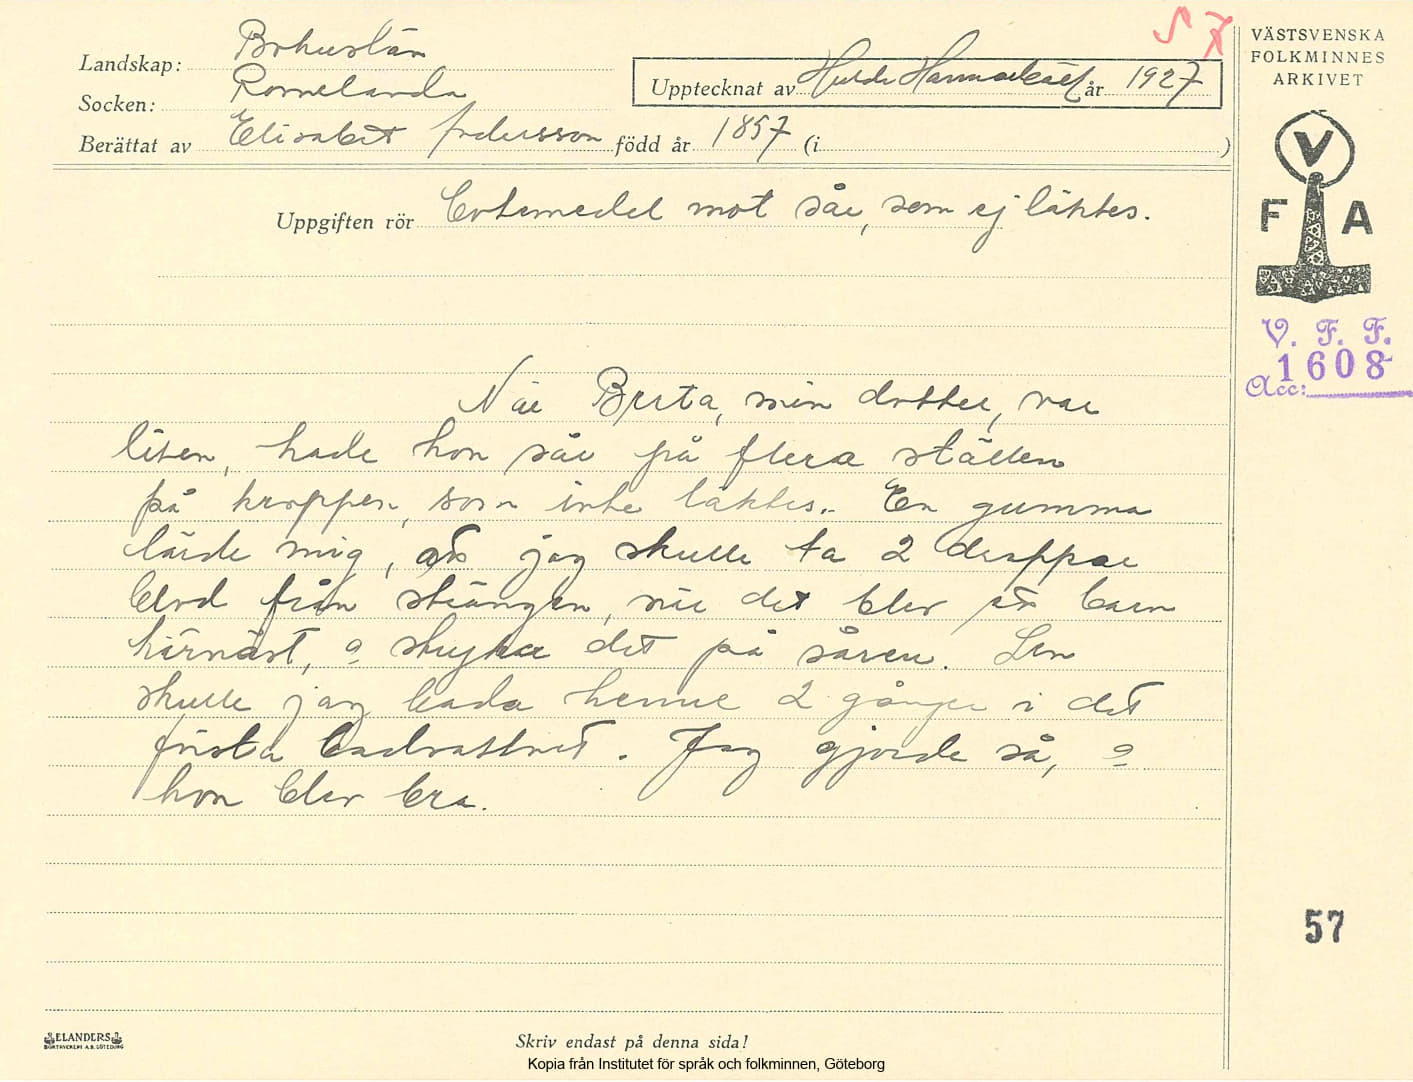 Landskap: Bohuslän
Socken: Romelanda
Upptecknat av Hulda Hammarbäck år 1927
Berättat av Elisabet Andersson född år 1857 (i )
VÄSTSVENSKA
FOLKMINNES
ARKIVET
V
F A
V. F. F.
Acc: 1608
Uppgiften rör Botemedel mot sår, som ej läktes.
När Brita, min dotter, var
liten, hade hon sår på flera ställen
på kroppen, som inte läktes. En gumma
lärde mig, att jag skulle ta 2 droppar
blod från strängen, när det blev ett barn
härnäst, o stryka det på såren. Sen
skulle jag bada henne 2 gånger i det
första badvattnet. Jag gjorde så, o
hon blev bra.
57
ELANDERS
BOKTRYCKERI A.B. GÖTEBORG
Skriv endast på denna sida!
Kopia från Institutet för språk och folkminnen, Göteborg